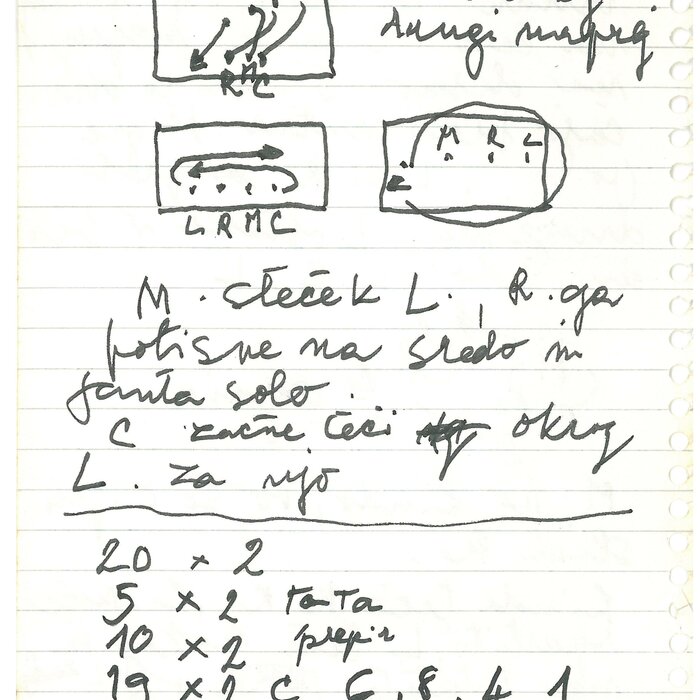 drugi naprej
R M C
M R L
L R M C
M . steček L . , R . ga
potisne na sredo in
fanta solo .
C začne teči okrog
L . za njo
20 x 2
5 x 2 ta Ta
10 x 2 prepir
19 x 2 C 6 , 8 , 4 , 1